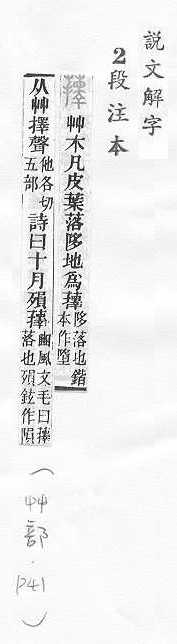 說文解字
2段注本
蘀 艸木凡皮葉落陊地爲蘀 陊落也鍇
本作墮
从艸擇聲 他各切
五部 詩曰十月殞蘀 豳風文毛曰蘀
落也殞鉉作隕
(艸部.P41)